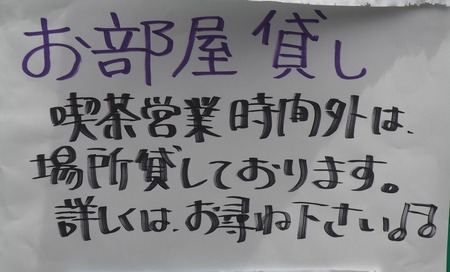 お部屋貸し
喫茶営業時間外は、
場所貸しております。
詳しくは、お尋ね下さい♪♫